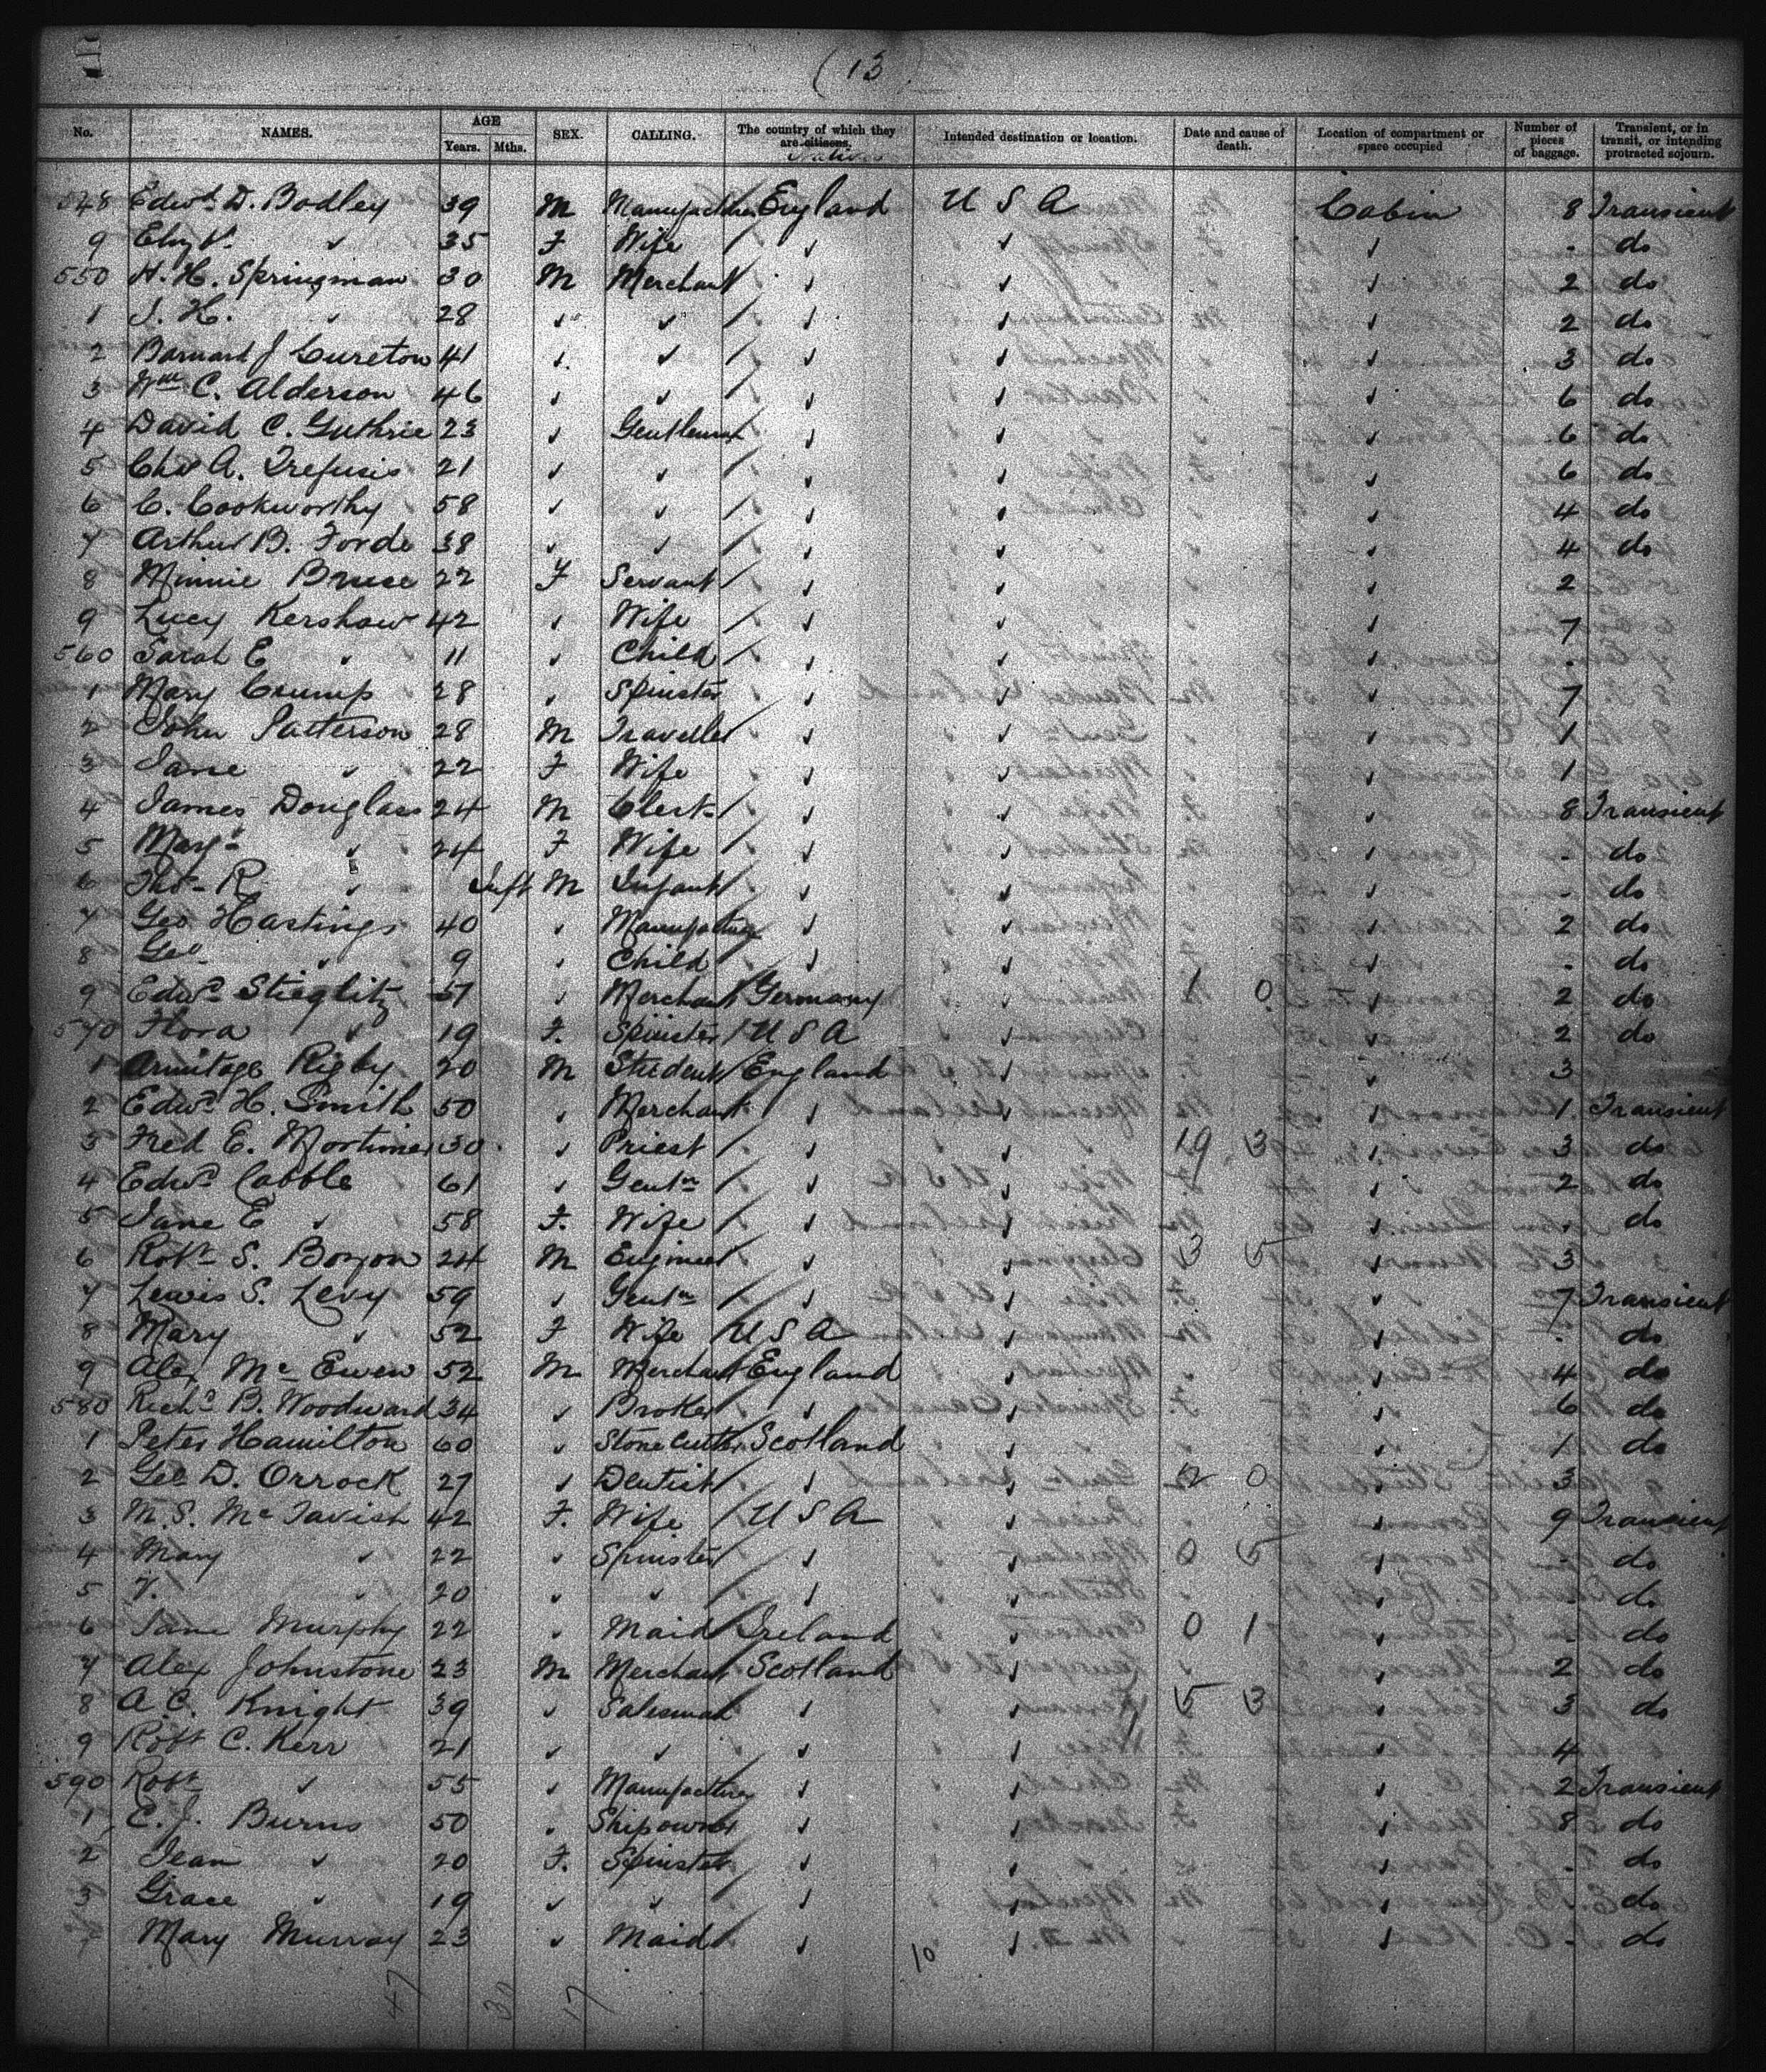 (13)
No. NAMES. AGE Years. Mths. SEX. CALLING. The country of which they are citizens. Natives Intended destination or location. Date and cause of death. Location of compartment or space occupied Number of pieces of baggage. Transient, or in transit, or intending protracted sojourn.
548 Edwd. D. Bodley 39 M Manufacturer England U S A Cabin 8 Transient
9 Elizth. ✓ 35 F Wife ✓ ✓ ✓ - do
550 H. H. Springman 30 M Merchant ✓ ✓ ✓ 2 do
1 J. H. ✓ 28 ✓ ✓ ✓ ✓ ✓ 2 do
2 Barnard J Cureton 41 ✓ ✓ ✓ ✓ ✓ 3 do
3 Wm C. Alderson 46 ✓ ✓ ✓ ✓ ✓ 6 do
4 David C. Guthrie 23 ✓ Gentleman ✓ ✓ ✓ 6 do
5 Chas A. Trefusis 21 ✓ ✓ ✓ ✓ ✓ 6 do
6 C. Cookworthy 58 ✓ ✓ ✓ ✓ ✓ 4 do
7 Arthur B. Forde 38 ✓ ✓ ✓ ✓ ✓ 4 do
8 Minnie Bruce 22 F Servant ✓ ✓ ✓ 2
9 Lucy Kershaw 42 ✓ Wife ✓ ✓ ✓ 7
560 Sarah E ✓ 11 ✓ Child ✓ ✓ ✓ -
1 Mary Crump 28 ✓ Spinster ✓ ✓ ✓ 7
2 John Patterson 28 M Traveller ✓ ✓ ✓ 1
3 Jane ✓ 22 F Wife ✓ ✓ ✓ 1
4 James Douglass 24 M Clerk ✓ ✓ ✓ 8 Transient
5 Mary ✓ 24 F Wife ✓ ✓ ✓ - do
6 Thos. R. ✓ Inft M Infant ✓ ✓ ✓ - do
7 Geo Hastings 40 ✓ Manufacturer ✓ ✓ ✓ 2 do
8 Geo ✓ 9 ✓ Child ✓ ✓ ✓ - do
9 Edwd. Stieglitz 57 ✓ Merchant Germany ✓ 1 0 ✓ 2 do
570 Flora ✓ 19 F. Spinster U S A ✓ ✓ 2 do
1 Armitage Rigby 20 M Student England ✓ ✓ 3
2 Edwd. H. Smith 50 ✓ Merchant ✓ ✓ ✓ 1 Transient
3 Fred E. Mortimer 30 ✓ Priest ✓ ✓ 19 3 ✓ 3 do
4 Edwd. Cabble 61 ✓ Gentn ✓ ✓ ✓ 2 do
5 Jane E ✓ 58 F. Wife ✓ ✓ ✓ - do
6 Robt. S. Boxon 24 M Engineer ✓ ✓ 3 5 ✓ 3
7 Lewis S. Levy 59 ✓ Gentn ✓ ✓ ✓ 7 Transient
8 Mary ✓ 52 F Wife U S A ✓ ✓ - do
9 Alex Mc Ewen 52 M Merchant England ✓ ✓ 4 do
580 Richd. B. Woodward 34 ✓ Broker ✓ ✓ ✓ 6 do
1 Peter Hamilton 60 ✓ Stone Cutter Scotland ✓ ✓ 1 do
2 Geo D. Orrock 27 ✓ Dentist ✓ ✓ 2 0 ✓ 3
3 M. S. Mc Tavish 42 F. Wife U S A ✓ ✓ 9 Transient
4 Mary ✓ 22 ✓ Spinster ✓ ✓ 0 5 ✓ - do
5 V. ✓ 20 ✓ ✓ ✓ ✓ ✓ - do
6 Jane Murphy 22 ✓ Maid Ireland ✓ 0 1 ✓ - do
7 Alex Johnstone 23 M Merchant Scotland ✓ ✓ 2 do
8 A. C. Knight 39 ✓ Salesman ✓ ✓ 5 3 ✓ 3 do
9 Robt C. Kerr 21 ✓ ✓ ✓ ✓ ✓ 4
590 Robt ✓ 55 ✓ Manufacturer ✓ ✓ ✓ 2 Transient
1 E. J. Burns 50 ✓ Shipowner ✓ ✓ ✓ 8 do
2 Jean ✓ 20 F. Spinster ✓ ✓ ✓ - do
3 Grace ✓ 19 ✓ ✓ ✓ ✓ ✓ - do
Mary Murray 23 ✓ Maid ✓ ✓ ✓ - do
10
47 30 17